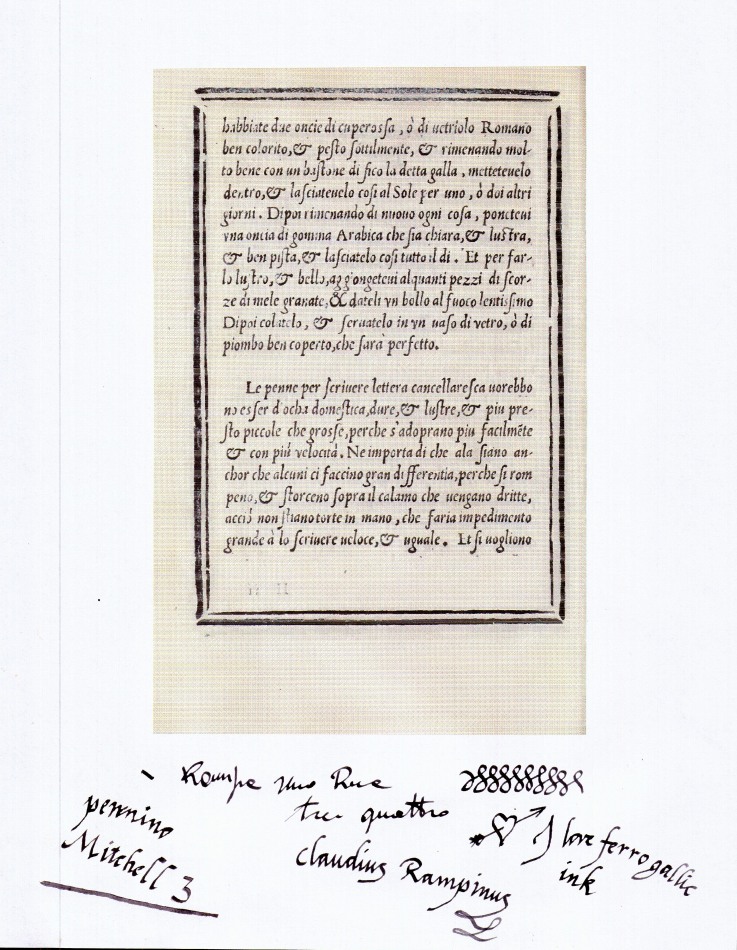 habbiate due oncie di cuperossa, ò di uetriolo Romano
ben colorito,& pesto sottilmente, & rimenando mol-
to bene con un bastone di fico la detta galla, metteteuelo
dentro,& lasciateuelo cosi al Sole per uno, ò doi altri
giorni. Dipoi rimenando di nuouo ogni cosa, poneteui
vna oncia di gomma Arabica che sia chiara,& lustra,
& ben pista,& lasciatelo cosi tutto il di. Et per far-
lo lustro,& bello,aggiongeteui alquanti pezzi di scor-
ze di mele granate,& dateli vn bollo al fuoco lentissimo
Dipoi colatelo, & seruatelo in vn uaso di vetro, ò di
piombo ben coperto,che sarà perfetto.
Le penne per scriuere lettera cancellaresca uorebbo
no esser d'ocha domestica,dure,& lustre,& piu pre-
sto piccole che grosse,perche s'adoprano piu facilmẽte
& con più velocità. Ne importa di che ala siano an-
chor che alcuni ci faccino gran differentia,perche si rom
peno,& storceno sopra il calamo che uengano dritte,
acciò non stiano torte in mano, che faria impedimento
grande à lo scriuere ueloce,& uguale. Et si uogliono
II
tre quattro
pennino
Mitchell 3
claudius Rampinus
I love ferrogallic
ink